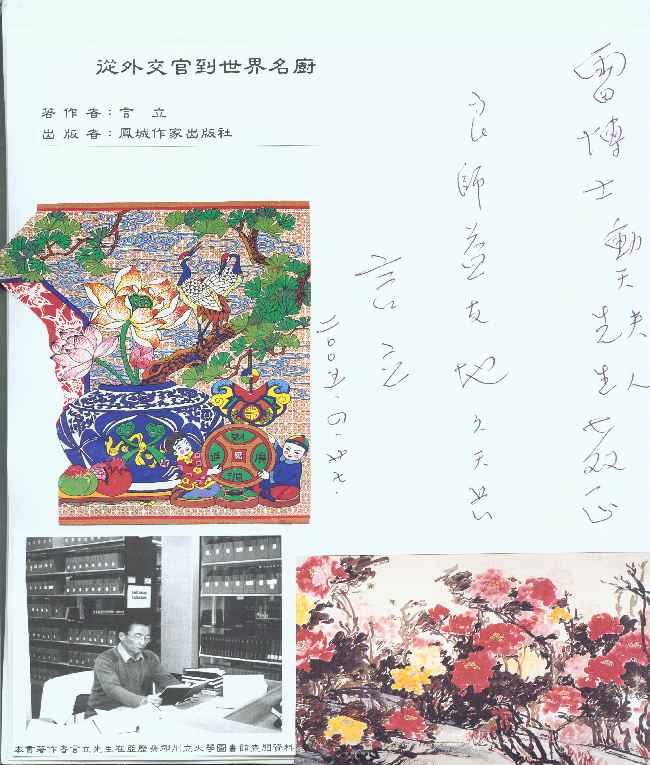 從外交官到世界名廚
著作者：言 立
出版者：鳳城作家出版社
雷博士 天先生
夫人
正
良師益友地久天長
言立
二〇〇五.
本書著作者言立先生在亞歷桑那州立大學圖書館查閱資料